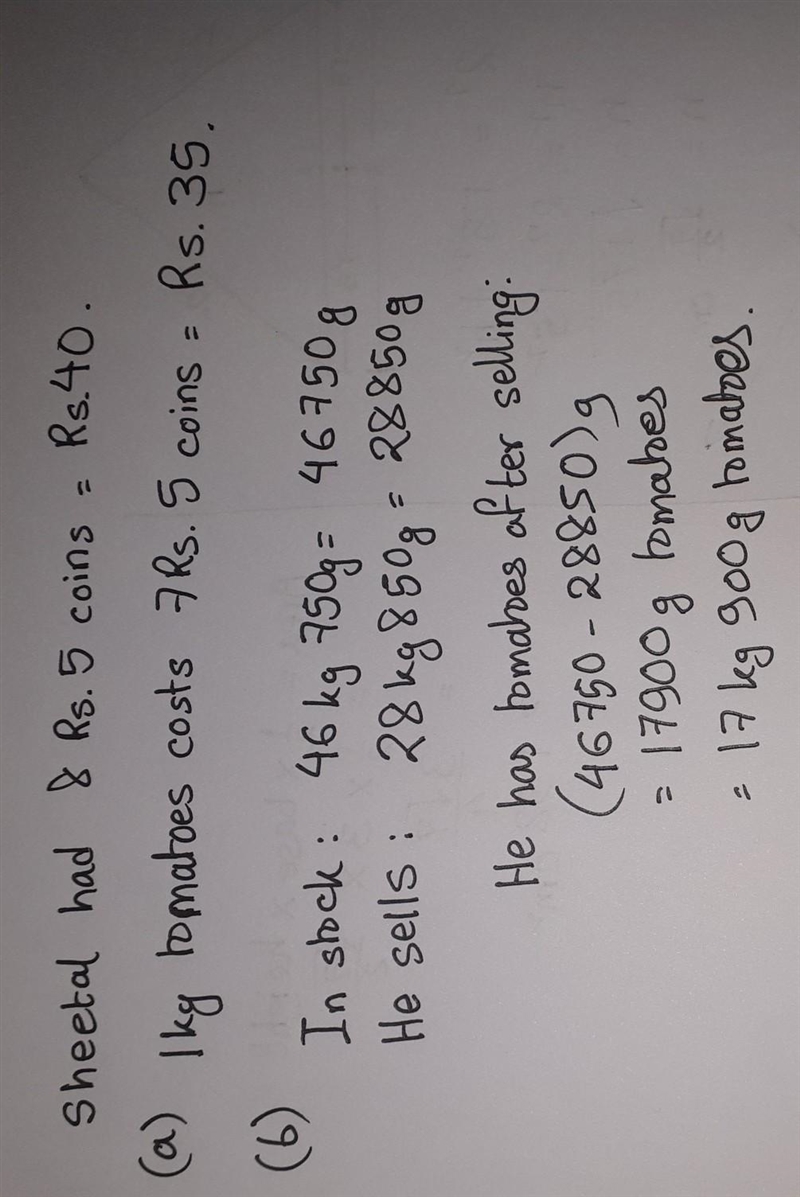 Sheetal had 8 Rs.5 coins = Rs.40.
(a) 1kg tomatoes costs 7Rs.5 coins = Rs. 35.
(b) In stock: 46kg 750g = 46750g
He sells: 28kg 850g = 28850g
He has tomatoes after selling:
(46750 - 28850)g
= 17900g tomatoes
= 17kg 900g tomatoes.